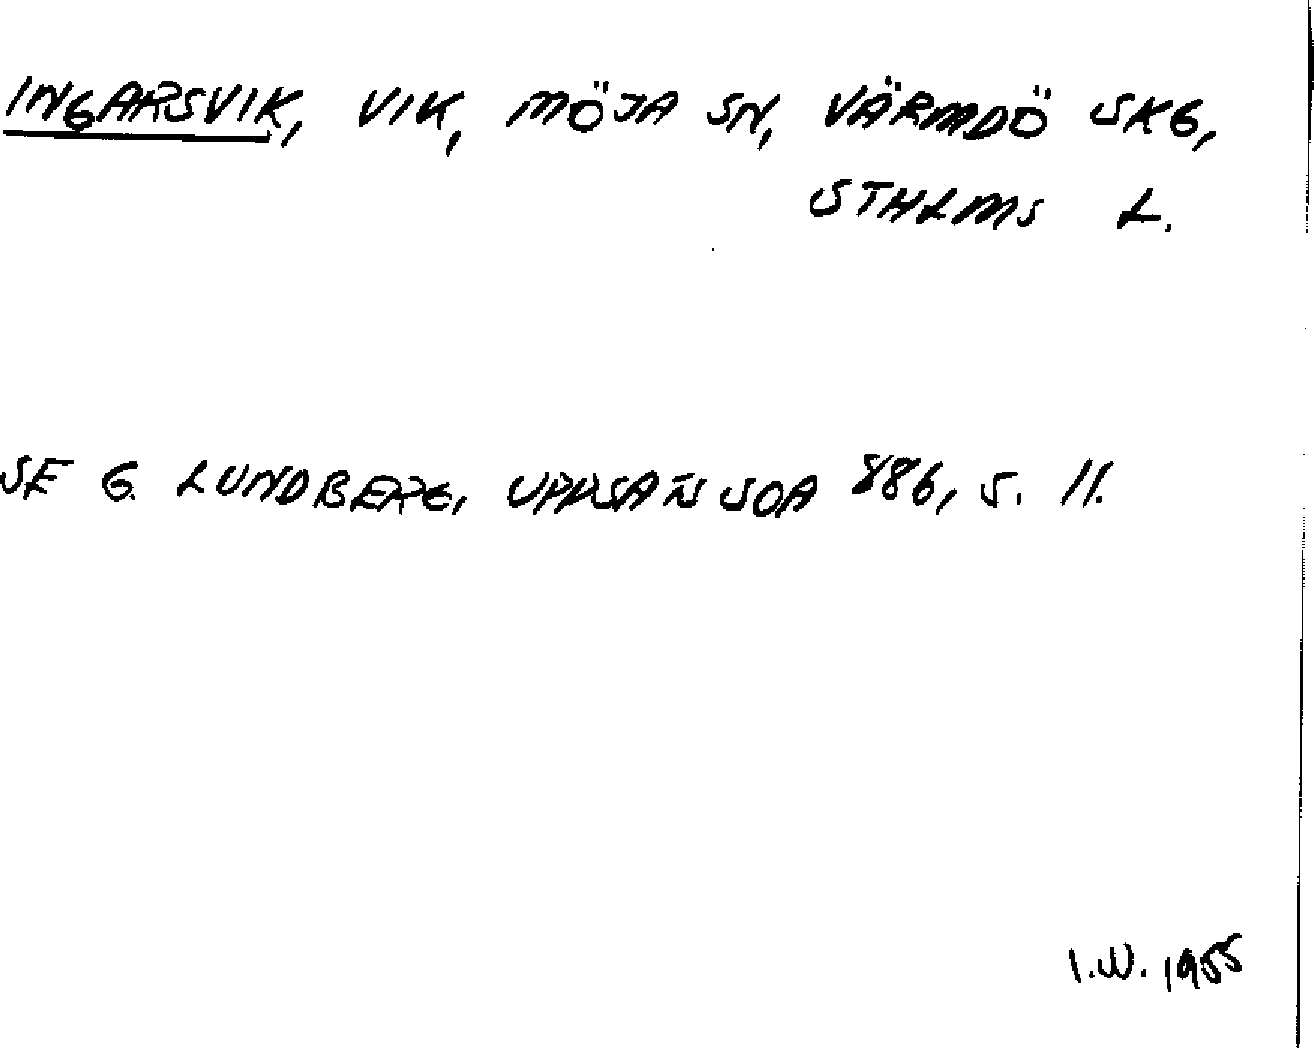 INGARSVIK, VIK, MÖJA SN, VÄRMDÖ SKG,
STHLMS L.
SE G. LUNDBERG, UPPSATS SOA 886, S. 11.
I.W. 1955